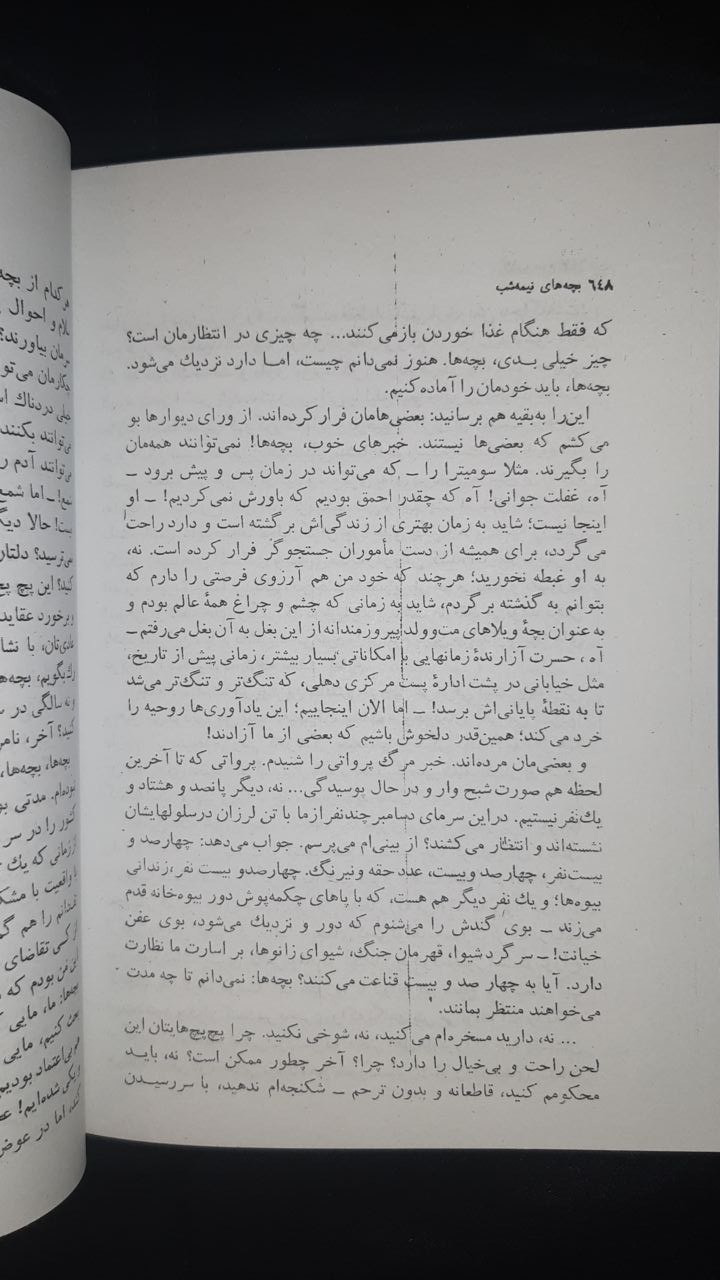 ۶۴۸ بچه‌های نیمه‌شب
که فقط هنگام غذا خوردن بازمی‌کنند... چه چیزی در انتظارمان است؟
چیز خیلی بدی، بچه‌ها. هنوز نمی‌دانم چیست، اما دارد نزدیك می‌شود.
بچه‌ها، باید خودمان را آماده کنیم.
این‌را به‌بقیه هم برسانید: بعضی‌هامان فرار کرده‌اند. از ورای دیوارها بو
می‌کشم که بعضی‌ها نیستند. خبرهای خوب، بچه‌ها! نمی‌توانند همه‌مان
را بگیرند. مثلا سومیترا را ـ که می‌تواند در زمان پس و پیش برود ـ
آه، غفلت جوانی! آه که چقدر احمق بودیم که باورش نمی‌کردیم! ـ او
اینجا نیست؛ شاید به زمان بهتری از زندگی‌اش برگشته است و دارد راحت
می‌گردد، برای همیشه از دست مأموران جستجوگر فرار کرده است. نه،
به او غبطه نخورید؛ هرچند که خود من هم آرزوی فرصتی را دارم که
بتوانم به گذشته برگردم، شاید به زمانی که چشم و چراغ همهٔ عالم بودم و
به عنوان بچهٔ ویلاهای مت‌وولد پیروزمندانه از این بغل به آن بغل می‌رفتم ـ
آه، حسرت آزارندهٔ زمانهایی با امکاناتی بسیار بیشتر، زمانی پیش از تاریخ،
مثل خیابانی در پشت ادارهٔ پست مرکزی دهلی، که تنگ‌تر و تنگ‌تر می‌شد
تا به نقطهٔ پایانی‌اش برسد! ـ اما الان اینجاییم؛ این یادآوری‌ها روحیه را
خرد می‌کند؛ همین‌قدر دلخوش باشیم که بعضی از ما آزادند!
و بعضی‌مان مرده‌اند. خبر مرگ پرواتی را شنیدم. پرواتی که تا آخرین
لحظه هم صورت شبح وار و در حال پوسیدگی... نه، دیگر پانصد و هشتاد و
یك‌نفر نیستیم. دراین سرمای دسامبر چندنفر ازما با تن لرزان در سلولهایشان
نشسته‌اند و انتظار می‌کشند؟ از بینی‌ام می‌پرسم. جواب می‌دهد: چهارصد و
بیست‌نفر، چهارصد وبیست، عدد حقه ونیرنگ. چهارصدو بیست نفر، زندانی
بیوه‌ها؛ و یك نفر دیگر هم هست، که با پاهای چکمه‌پوش دور بیوه‌خانه قدم
می‌زند ـ بوی گندش را می‌شنوم که دور و نزدیك می‌شود، بوی عفن
خیانت! ـ سرگرد شیوا، قهرمان جنگ، شیوای زانوها، بر اسارت ما نظارت
دارد. آیا به چهار صد و بیست قناعت می‌کنند؟ بچه‌ها: نمی‌دانم تا چه مدت
می‌خواهند منتظر بمانند.
... نه، دارید مسخره‌ام می‌کنید، نه، شوخی نکنید. چرا پچ‌پچ‌هایتان این
لحن راحت و بی‌خیال را دارد؟ چرا؟ آخر چطور ممکن است؟ نه، باید
محکومم کنید، قاطعانه و بدون ترحم ـ شکنجه‌ام ندهید، با سررسیدن